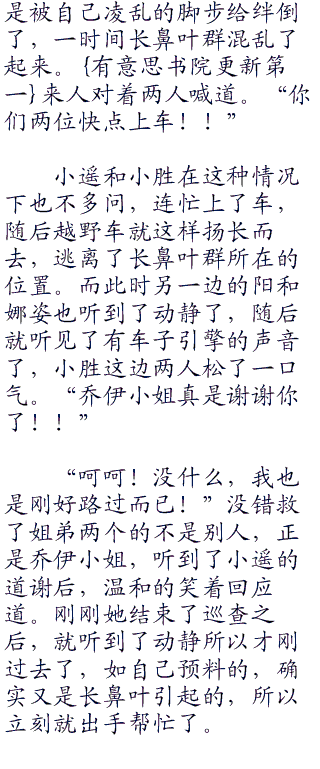 是被自己凌乱的脚步给绊倒
了，一时间长鼻叶群混乱了
起来。{有意思书院更新第
一}来人对着两人喊道。“你
们两位快点上车！！”
小遥和小胜在这种情况
下也不多问，连忙上了车，
随后越野车就这样扬长而
去，逃离了长鼻叶群所在的
位置。而此时另一边的阳和
娜姿也听到了动静了，随后
就听见了有车子引擎的声音
了，小胜这边两人松了一口
气。“乔伊小姐真是谢谢你
了！！”
“呵呵！没什么，我也
是刚好路过而已！”没错救
了姐弟两个的不是别人，正
是乔伊小姐，听到了小遥的
道谢后，温和的笑着回应
道。刚刚她结束了巡查之
后，就听到了动静所以才刚
过去了，如自己预料的，确
实又是长鼻叶引起的，所以
立刻就出手帮忙了。